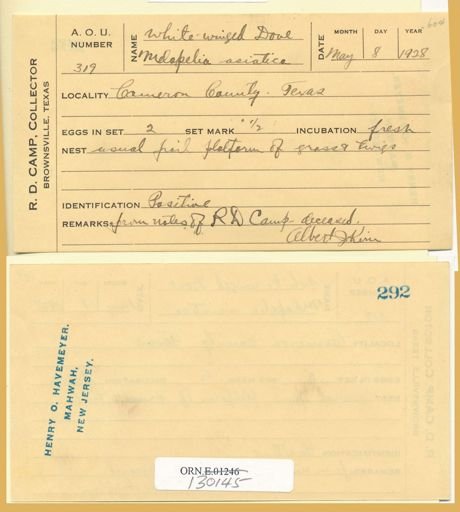 A. O. U. NUMBER 319
NAME White-winged Dove
Melopelia asiatica
DATE MONTH DAY YEAR
May 8 1928
R. D. CAMP, COLLECTOR
BROWNSVILLE, TEXAS
LOCALITY Cameron County. Texas
EGGS IN SET 2 SET MARK 1/2 INCUBATION fresh
NEST usual frail platform of grass & twigs
IDENTIFICATION Positive
REMARKS from notes of R D Camp - deceased.
Albert J Kirn
292
HENRY O. HAVEMEYER.
MAHWAH,
NEW JERSEY.
ORN.E.01246
130145